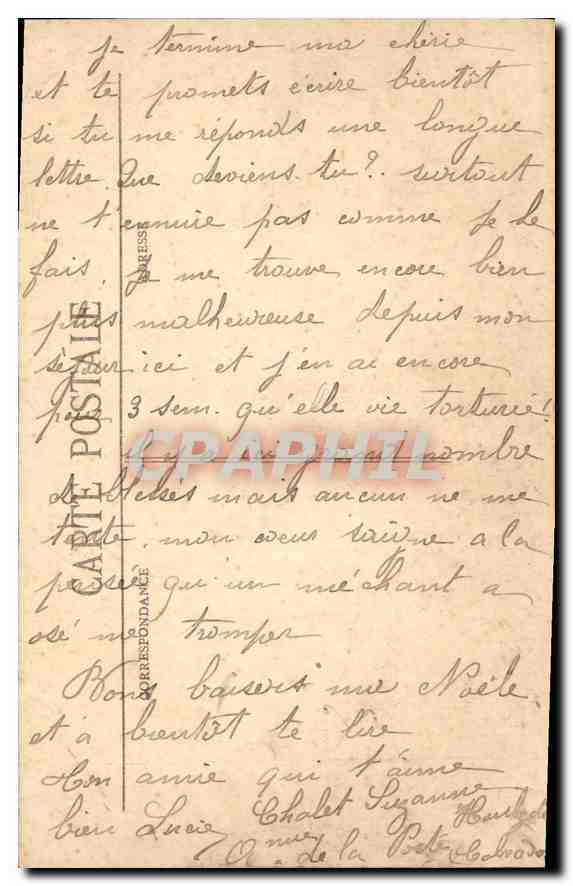 je termine ma chérie
et te promets écrire bientôt
si tu me réponds une longue
lettre. Que deviens-tu?.. surtout
ne t'ennuie pas comme je le
fais, je me trouve encore bien
plus malheureuse depuis mon
séjour ici et j'en ai encore
pour 3 sem. qu'elle vie torturée!
Il y a ici grand nombre
de blessés mais aucun ne me
tente, mon coeur saigne a la
pensée qu'un méchant a
osé me tromper
Bons baisers ma Noële
et à bientôt te lire
Ton amie qui t'aime
bien Lucie
Chalet Suzanne
de la Porte
Calvados
CARTE POSTALE
CORRESPONDANCE
ADRESSE
CPAPHIL